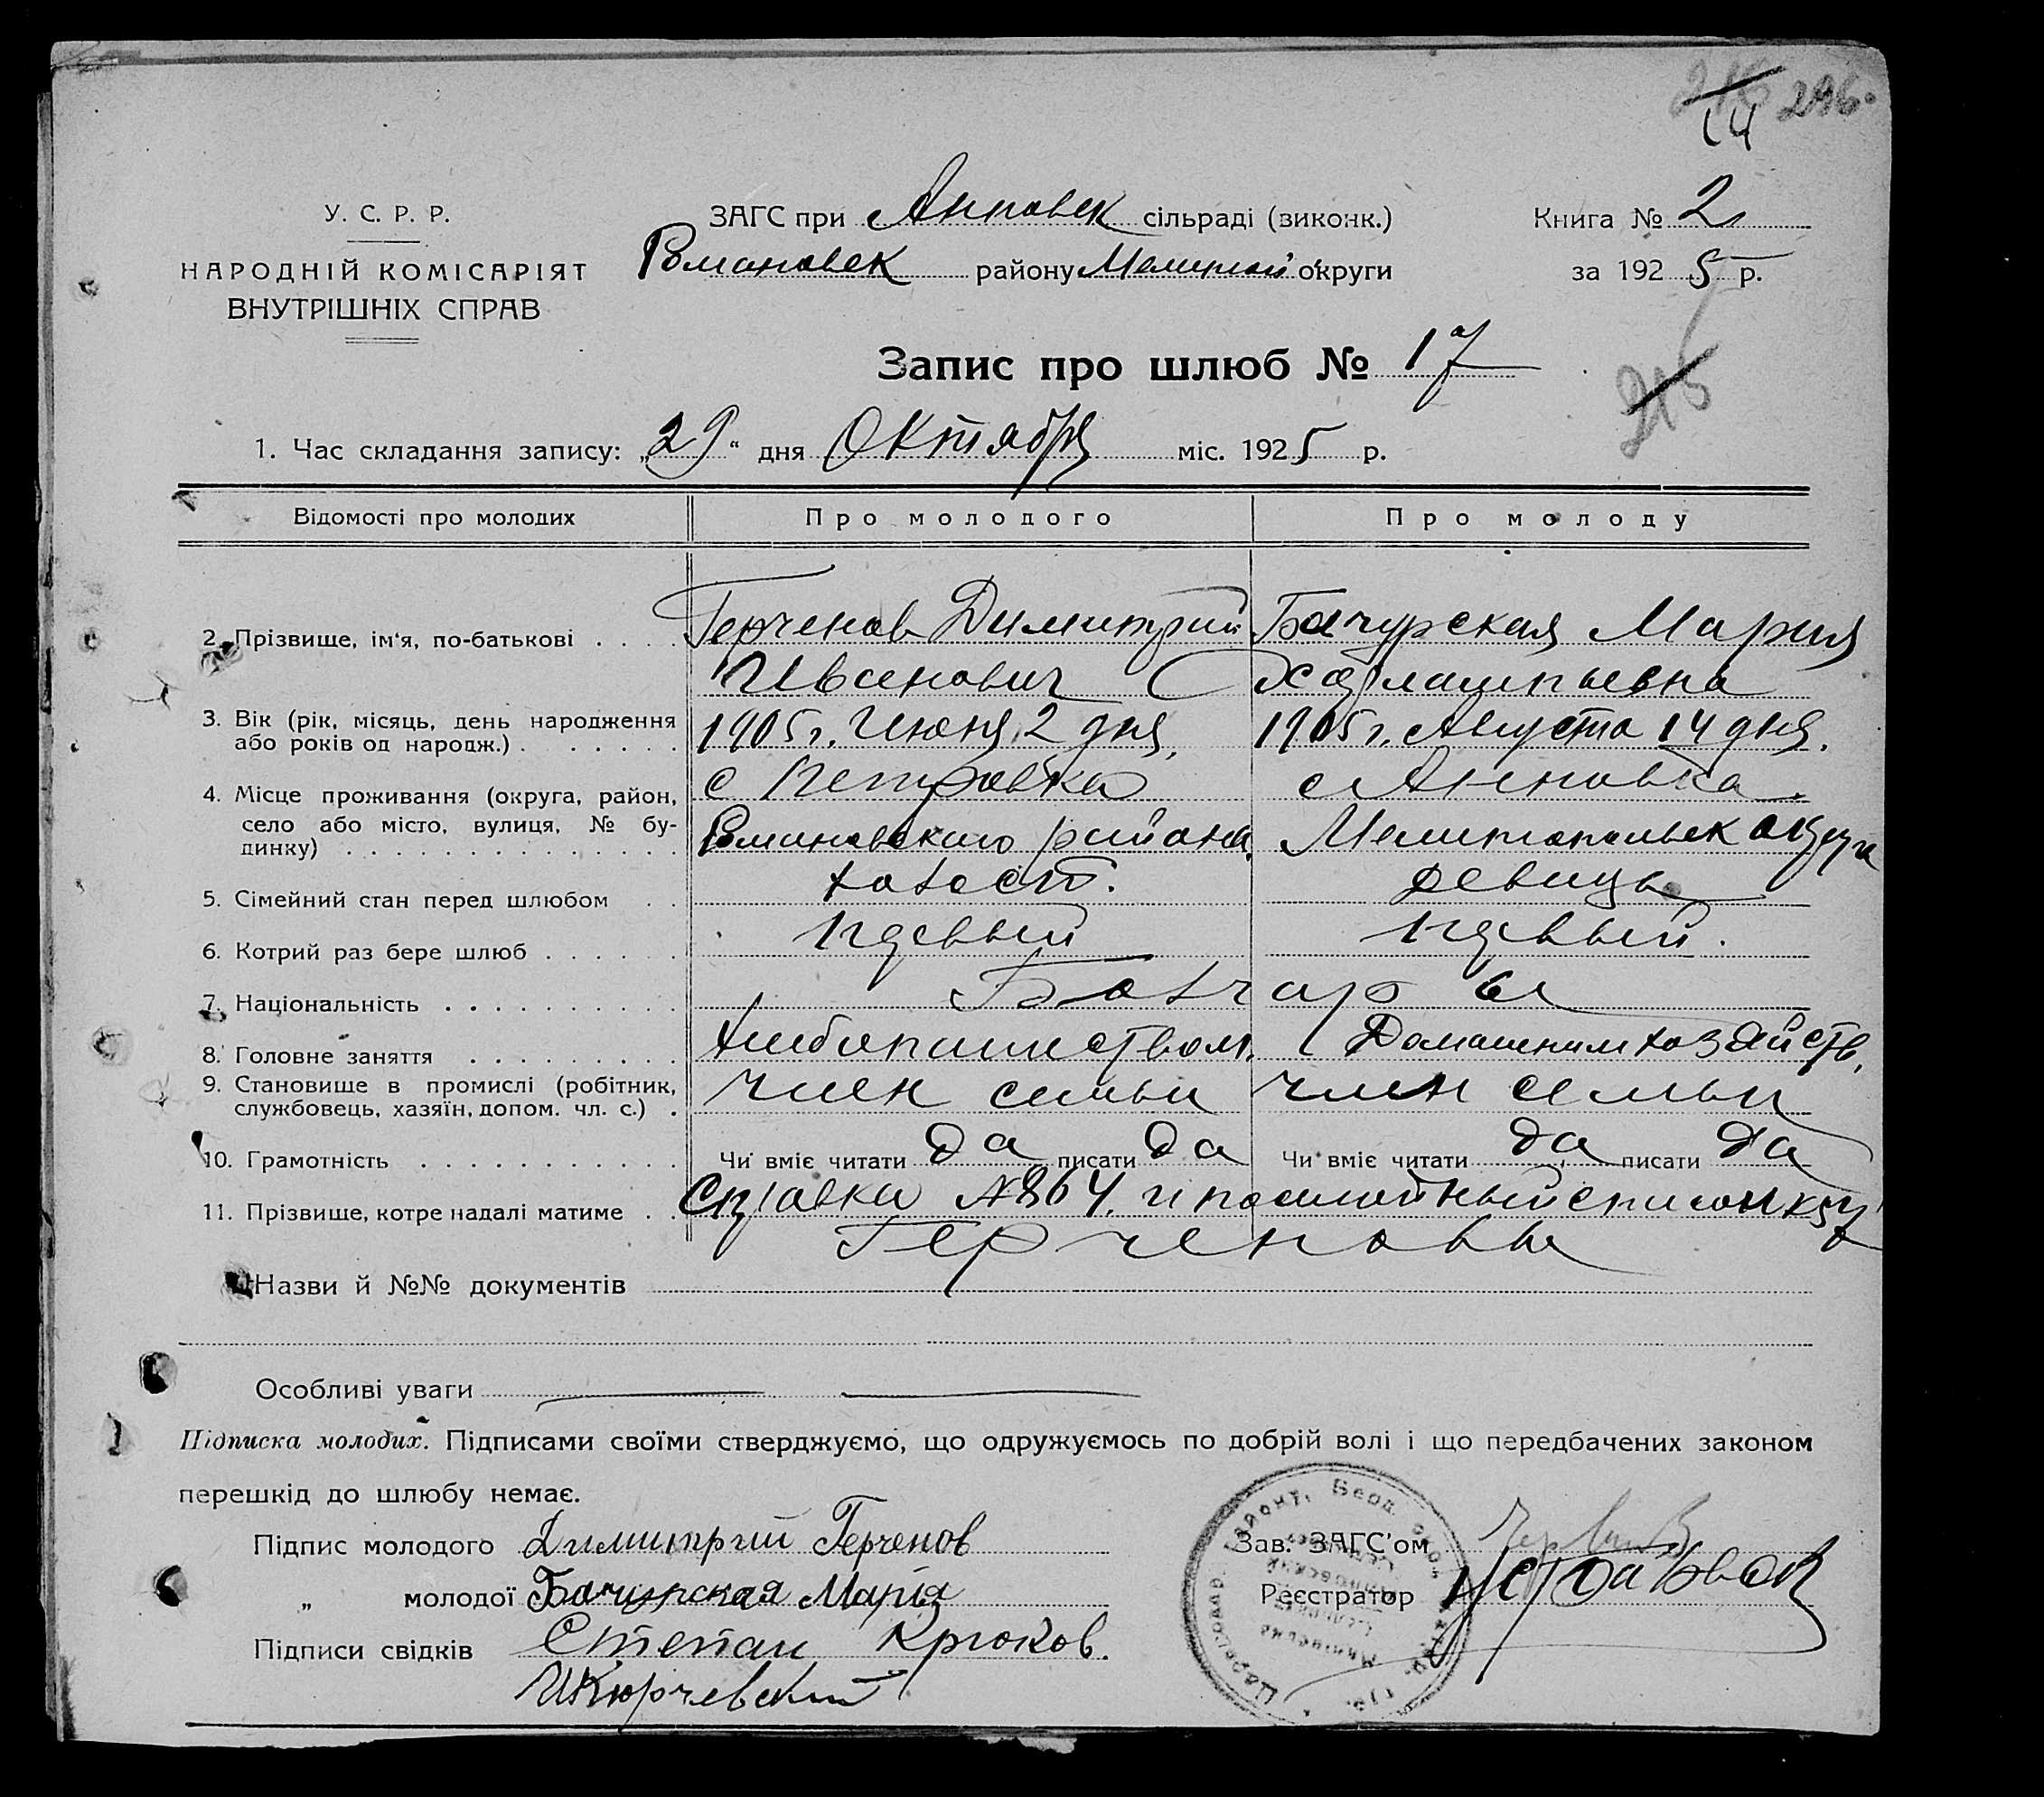 296.
14
У. С. Р. Р.
НАРОДНІЙ КОМІСАРІЯТ
ВНУТРІШНІХ СПРАВ
ЗАГС при Анновск сільраді (виконк.)
Романовск району Мелитой округи
Книга № 2
за 1925 р.
Запис про шлюб № 17
215
1. Час складання запису: „29“ дня Октября міс. 1925 р.
Відомості про молодих Про молодого Про молоду
2. Прізвище, ім'я, по-батькові . . . . Герченов Димитрий Бачурская Мария
Иванович
3. Вік (рік, місяць, день народження 1905 г. Июня 2 дня, 1905 г. Августа 14 дня.
або років од народж.) . . . . . .
4. Місце проживання (округа, район, с Петровка с Анновка.
село або місто, вулиця, № бу- Романовского района Мелитопольск округа
динку) . . . . . . . . . . . . . .
5. Сімейний стан перед шлюбом . . холост. девица
6. Котрий раз бере шлюб . . . . . . первый первый.
7. Національність . . . . . . . . . . Болгары
8. Головне заняття . . . . . . . . . хлебопашеством. Домашним хозяйств.
9. Становище в промислі (робітник, член семьи член семьи
службовець, хазяїн, допом. чл. с.) .
10. Грамотність . . . . . . . . . . . Чи вміє читати да писати да Чи вміє читати да писати да
Справка № 864, и посемейный список
11. Прізвище, котре надалі матиме . .
Герченовы
Назви й №№ документів
Особливі уваги
Підписка молодих. Підписами своїми стверджуємо, що одружуємось по добрій волі і що передбачених законом
перешкід до шлюбу немає.
Підпис молодого Димитрий Герченов
„ молодої Бачурская Марія
Підписи свідків Степан Крюков.
И Кюрчевский
Зав. ЗАГС'ом
Реєстратор